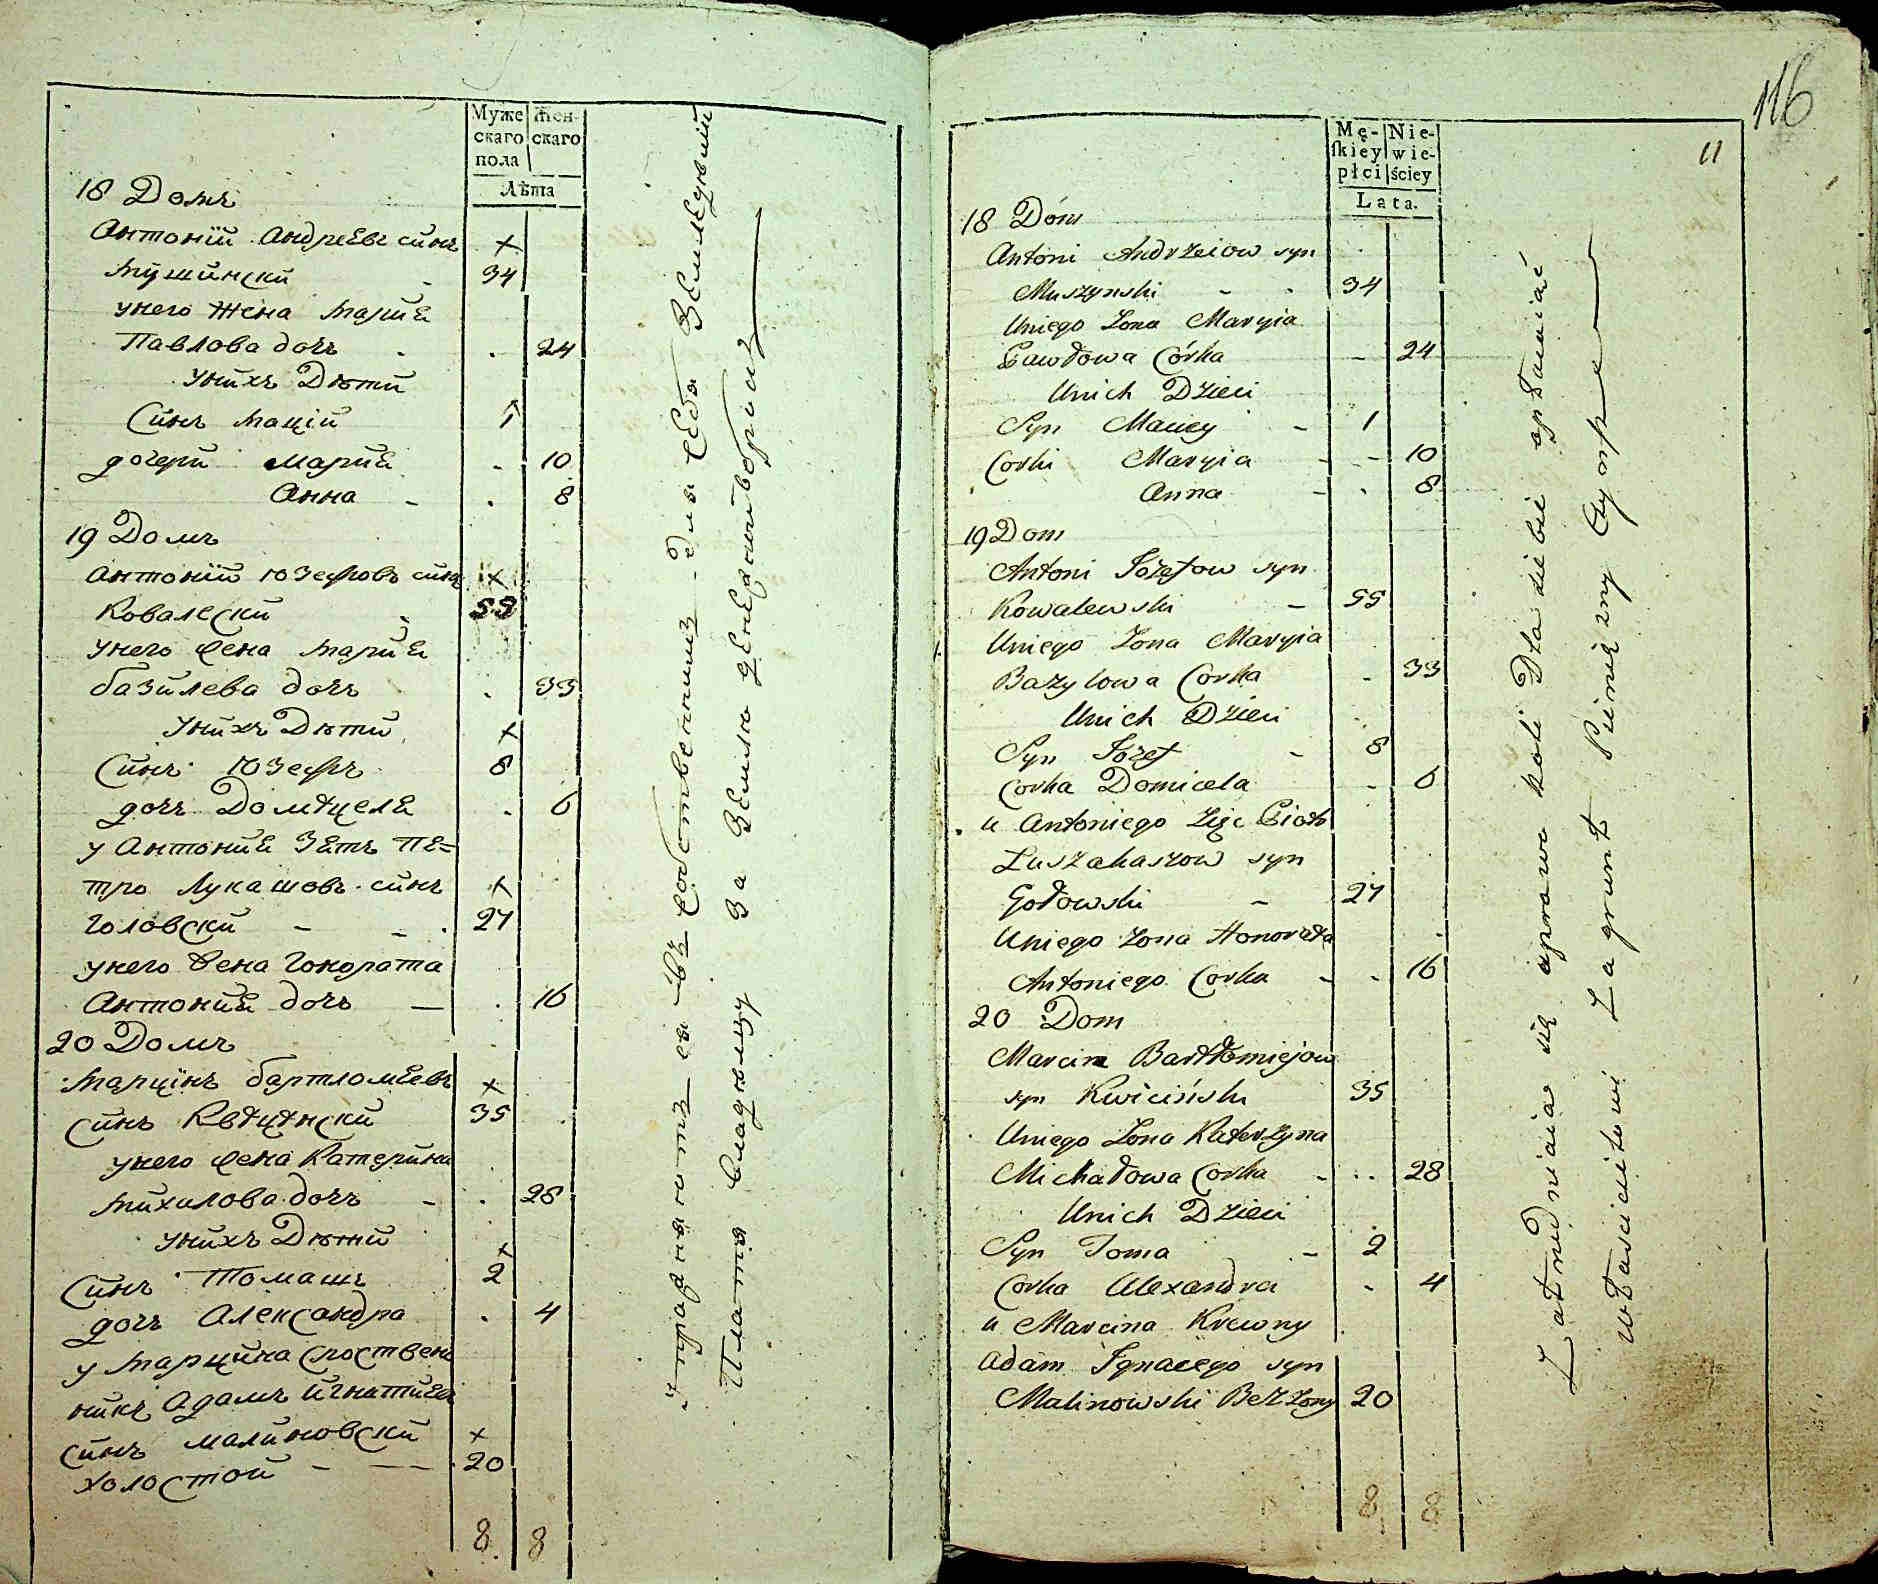 Муже
скаго
пола
Жен-
скаго
Лѣта
18 Домъ
Антоній Андреевъ синъ +
Мушински 34
унего Жена Мариѣ
Павлова дочъ 24
Унихъ Дѣти
Синъ Мацій 1
дочери Мариѣ 10
Анна 8
19 Домъ
Антоній Юзефовъ синъ +
Ковалески 55
унего Жена Мариѣ
базилева дочъ 33
Унихъ Дѣти +
Синъ Юзефъ 8
дочъ Доміцелѣ 6
у Антониѣ Зѣтъ Пѣ=
тро Лукашовъ синъ +
Головски 27
унего Жена Гонората
Антониѣ дочъ 16
20 Домъ
Марцинъ бартломѣевъ +
Синъ Квіцінски 35
унего Жена Катерина
михалова дочъ 28
Унихъ Дѣти +
Синъ Томашъ 2
дочъ Александра 4
у Марцина
Адамъ
Синъ малиновски +
холостой 20
8 8
для себѣ Землѣдѣлій
Платѣ владѣлцу за Землю
116
11
Mę-
skiey
płci
Nie-
wie-
ściey
Lata.
18 Dóm
Antoni Andrzeiow syn
Muszynski - 34
Uniego Zona Maryia
Pawłowa Córka - 24
Unich Dzieci
Syn Maciey - 1
Corki Maryia - - 10
Anna - 8
19 Dom
Antoni Józefow syn
Kowalewski - 55
Uniego Zona Maryia
Bazylowa Corka 33
Unich Dzieci
Syn Józef - 8
Corka Domicela - 6
u Antoniego Zięc Piotr
Łuszakaszow syn
Gołowski - 27
Uniego Zona Honorata
Antoniego Corka - 16
20 Dom
Marcin Bartłomiejow
syn Kwiciński 35
Uniego Zona Katerzyna
Michałowa Corka - 28
Unich Dzieci
Syn Toma - 2
Corka Alexandra - 4
u Marcina Krewny
Adam Ignacego syn
Malinowski Bez Zony 20
8 8
Zatrudniaia się uprawą roli Dla siebie opłaciać
włascicielowi Za grunt Pieniężny Czynsz